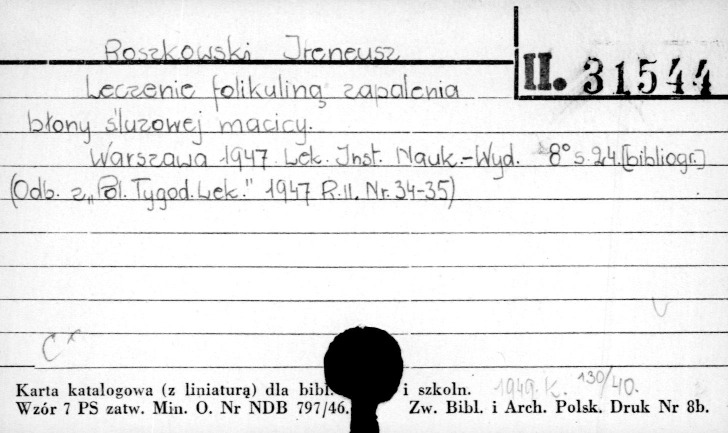 Roszkowski Ireneusz
II. 31544
Leczenie folikuliną zapalenia
błony śluzowej macicy.
Warszawa 1947. Lek. Inst. Nauk.-Wyd. 8° s. 24. [bibliogr.]
(Odb. z „Pol. Tygod. Lek." 1947 R. II. Nr. 34-35)
Karta katalogowa (z liniaturą) dla bibl. i szkoln.
1949. K. 130/40.
Wzór 7 PS zatw. Min. O. Nr NDB 797/46. Zw. Bibl. i Arch. Polsk. Druk Nr 8b.